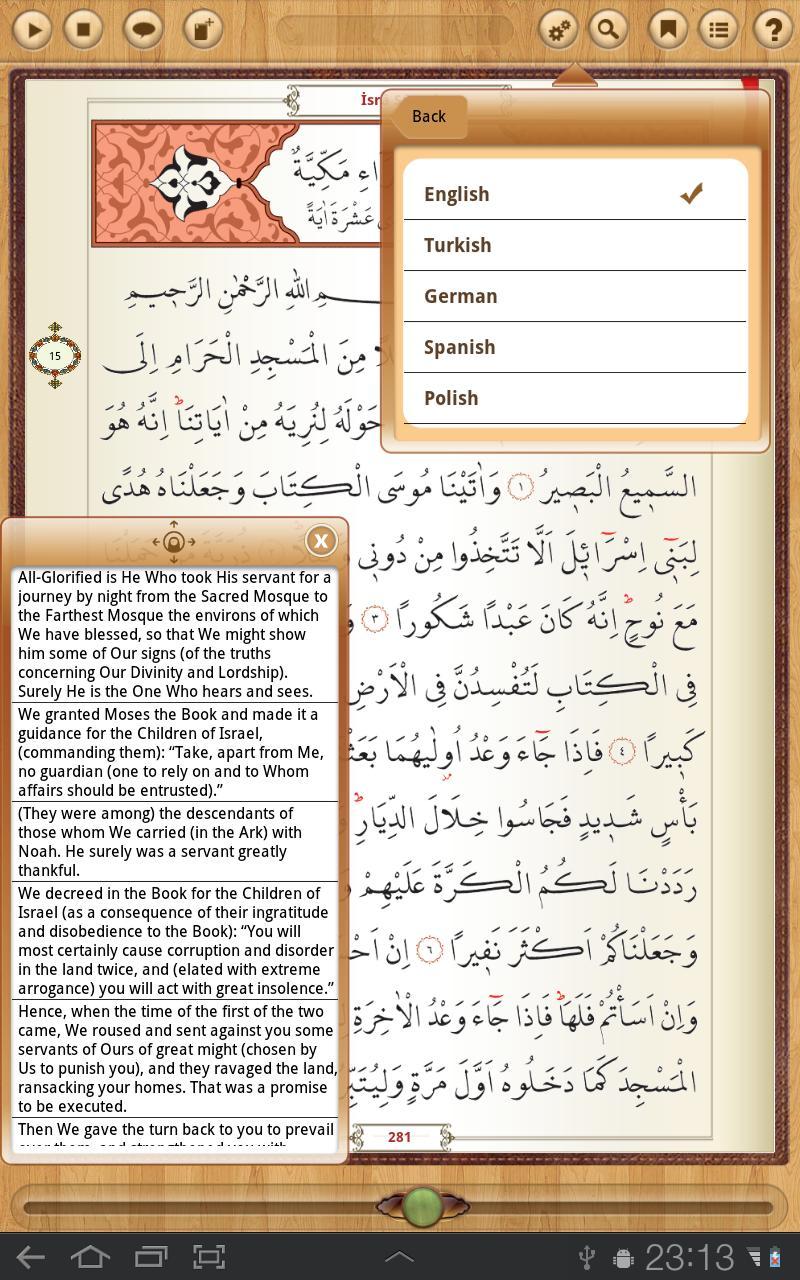 İsr
Back
English
Turkish
German
Spanish
Polish
مَكِّيَّةٌ
عَشْرَةَ اٰيَةً
اللّٰهِ الرَّحْمٰنِ الرَّحِيمِ
15
مِنَ الْمَسْجِدِ الْحَرَامِ اِلَى
حَوْلَهُ لِنُرِيَهُ مِنْ اٰيَاتِنَاۜ اِنَّهُ هُوَ
السَّمِيعُ الْبَصِيرُ ١ وَاٰتَيْنَا مُوسَى الْكِتَابَ وَجَعَلْنَاهُ هُدًى
لِبَنِٓي اِسْرَٓائِلَ اَلَّا تَتَّخِذُوا مِنْ دُونِي
مَعَ نُوحٍۜ اِنَّهُ كَانَ عَبْدًا شَكُورًا ٣
فِي الْكِتَابِ لَتُفْسِدُنَّ فِي الْاَرْضِ
كَبِيرًا ٤ فَاِذَا جَٓاءَ وَعْدُ اُولٰيهُمَا
بَأْسٍ شَدِيدٍ فَجَاسُوا خِلَالَ الدِّيَارِۜ
رَدَدْنَا لَكُمُ الْكَرَّةَ عَلَيْهِمْ
وَجَعَلْنَاكُمْ اَكْثَرَ نَفِيرًا ٦ اِنْ
وَاِنْ اَسَأْتُمْ فَلَهَاۜ فَاِذَا جَٓاءَ وَعْدُ الْاٰخِرَةِ
الْمَسْجِدَ كَمَا دَخَلُوهُ اَوَّلَ مَرَّةٍ
All-Glorified is He Who took His servant for a
journey by night from the Sacred Mosque to
the Farthest Mosque the environs of which
We have blessed, so that We might show
him some of Our signs (of the truths
concerning Our Divinity and Lordship).
Surely He is the One Who hears and sees.
We granted Moses the Book and made it a
guidance for the Children of Israel,
(commanding them): “Take, apart from Me,
no guardian (one to rely on and to Whom
affairs should be entrusted).”
(They were among) the descendants of
those whom We carried (in the Ark) with
Noah. He surely was a servant greatly
thankful.
We decreed in the Book for the Children of
Israel (as a consequence of their ingratitude
and disobedience to the Book): “You will
most certainly cause corruption and disorder
in the land twice, and (elated with extreme
arrogance) you will act with great insolence.”
Hence, when the time of the first of the two
came, We roused and sent against you some
servants of Ours of great might (chosen by
Us to punish you), and they ravaged the land,
ransacking your homes. That was a promise
to be executed.
Then We gave the turn back to you to prevail
281
23:13